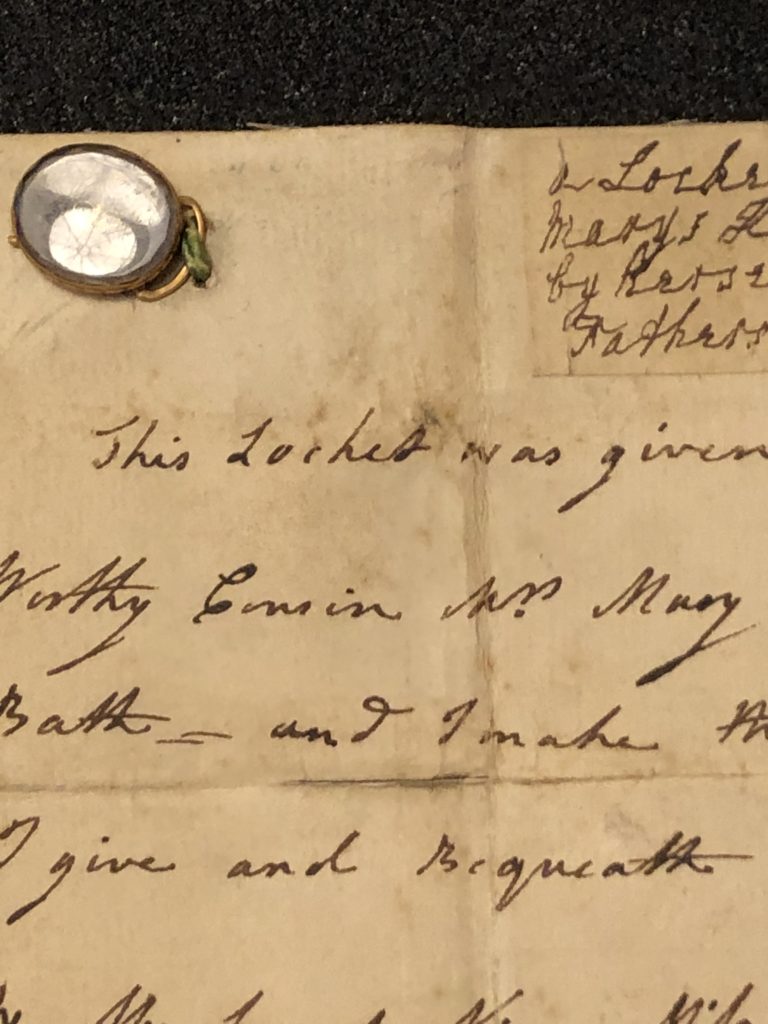 a Locke
Marys
by
Fathers
This Locket was given
Worthy Cousin Mrs Mary
Bath — and I make th
I give and Bequeath